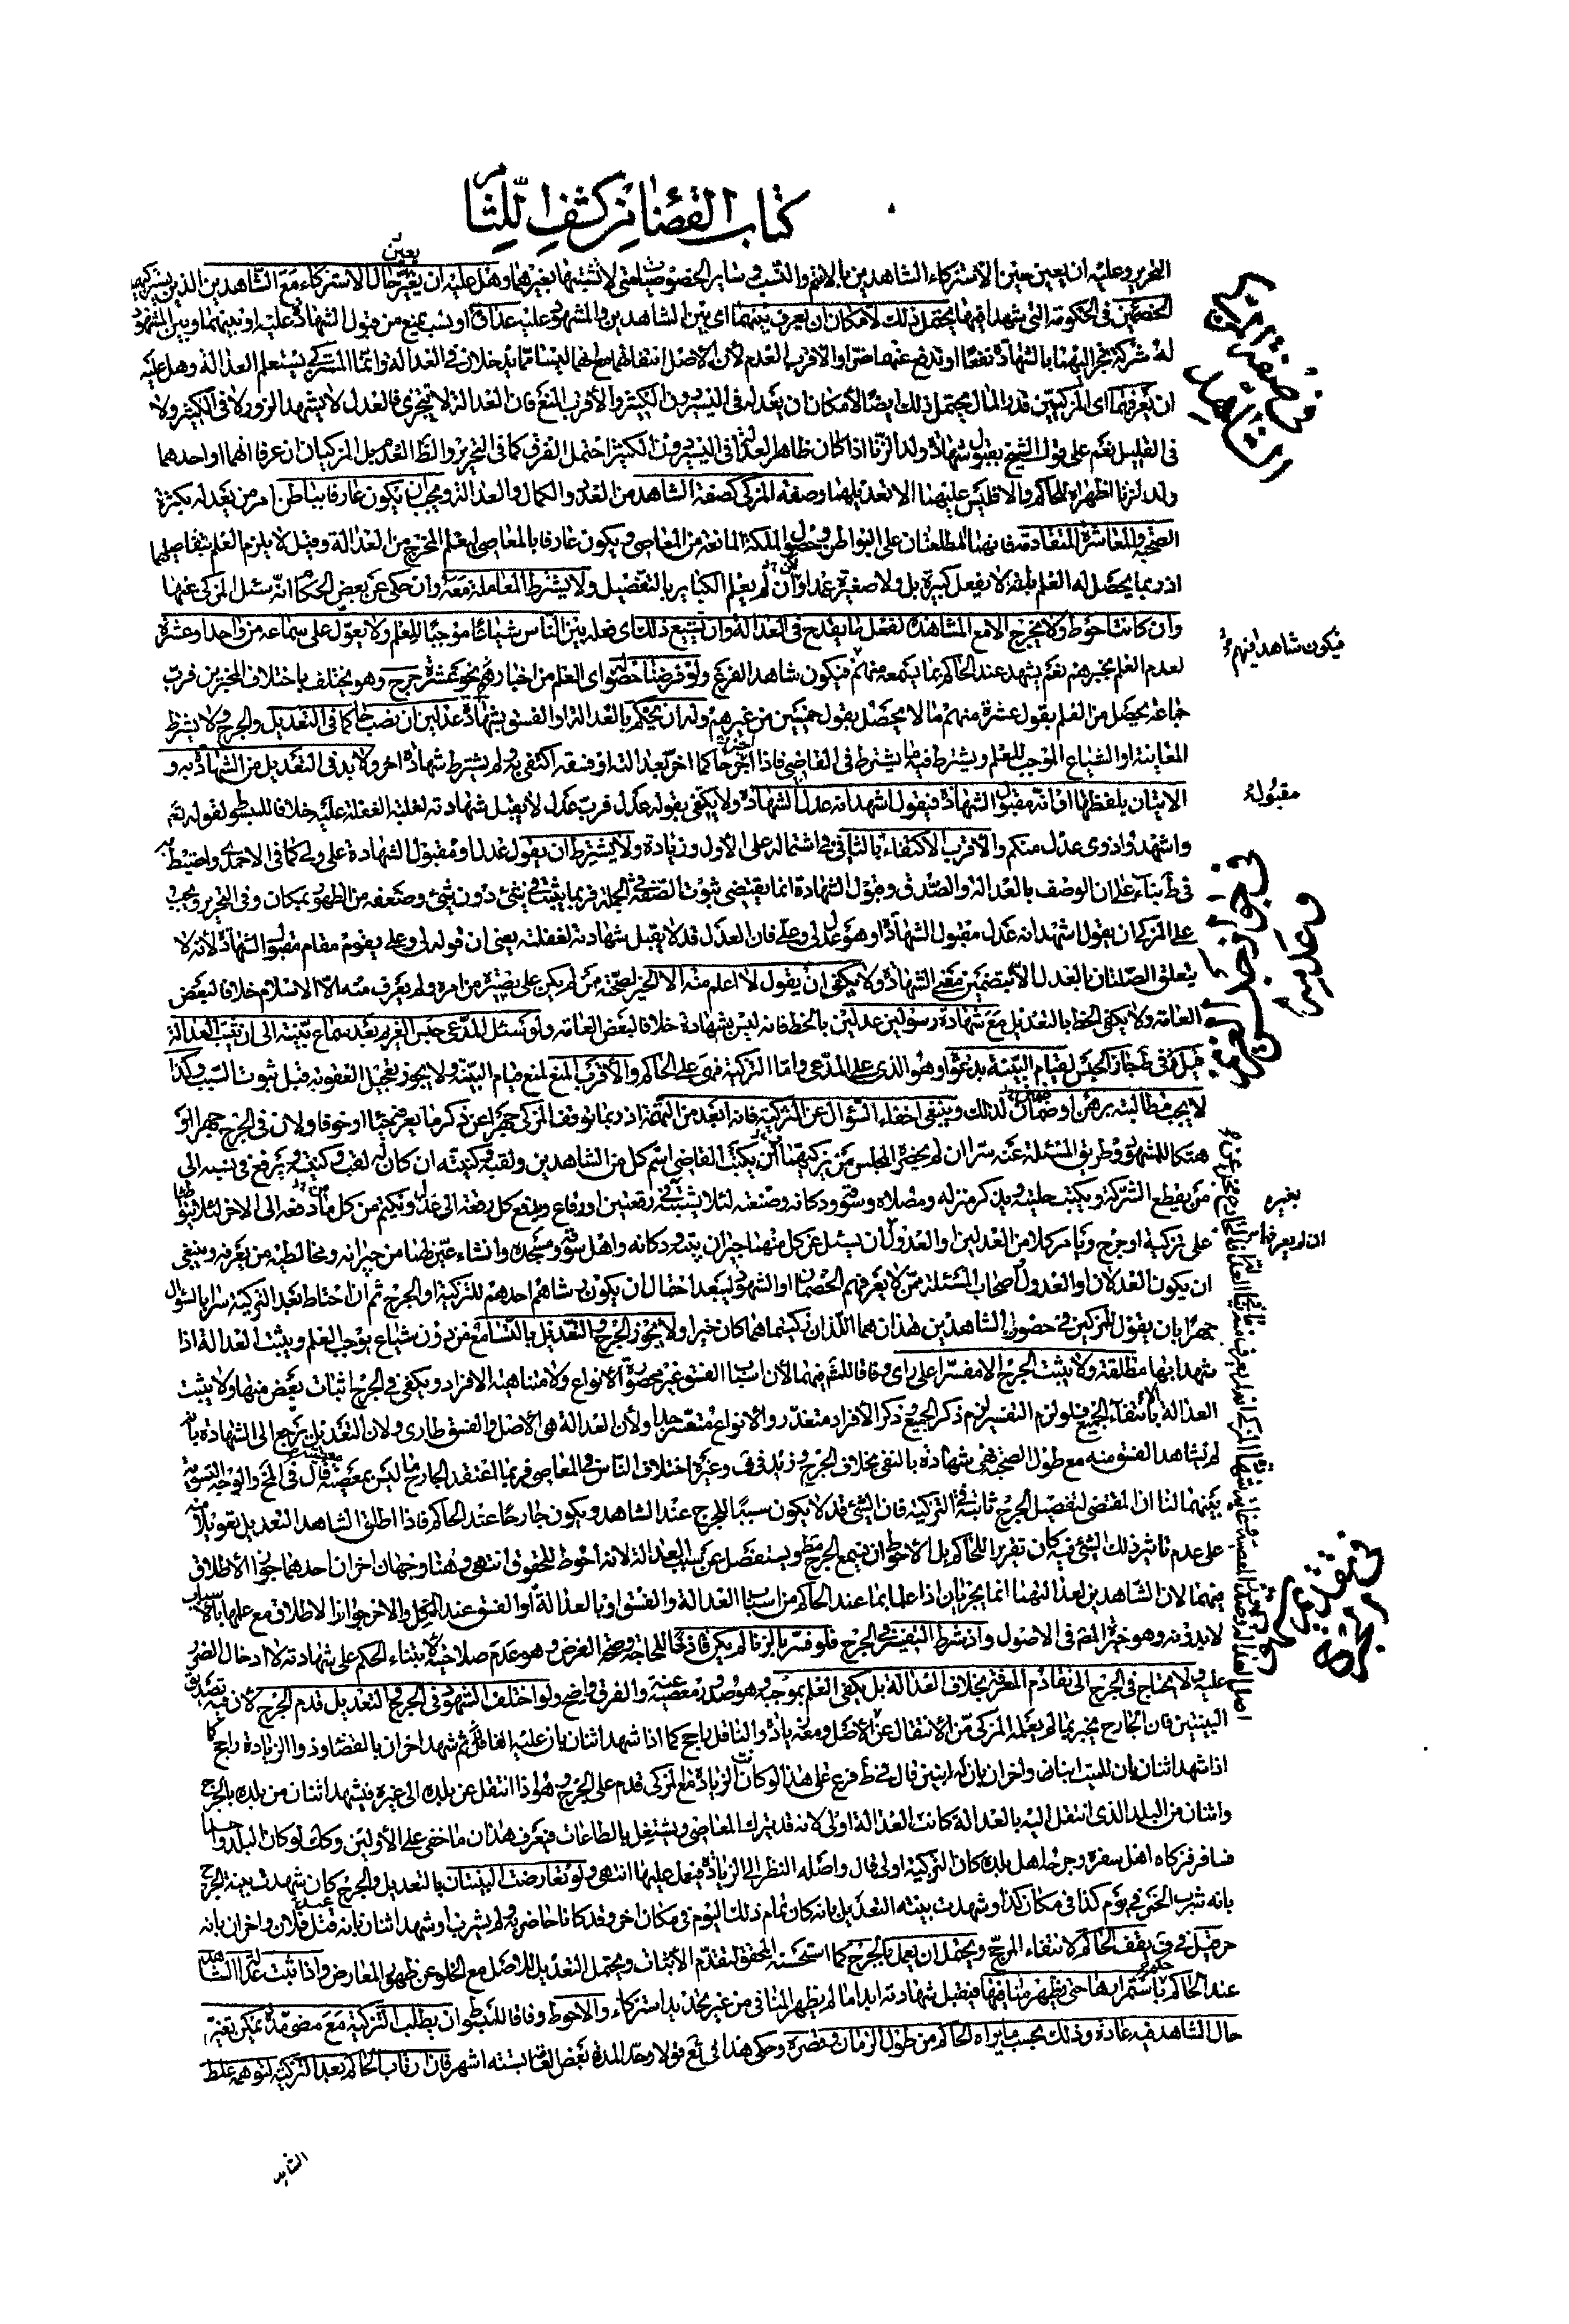 كتاب القضاء من كشف اللثام
التحرير وعليه ان يعين حين الاستزكاء الشاهدين بالاسم والنسب وساير الخصوصيات لا تشتبها بغيرهما وهل عليه ان يعين حال الاستزكاء مع الشاهدين الذين
الخصمين في الحكومة التي شهدا فيها يحتمل ذلك لامكان ان يعرف بينهما اى بين الشاهدين والمشهود عليه عداوة او سبب يمنع من قبول الشهادة عليه او بينهما وبين المشهود
له شركة تجر اليهما بالشهادة نفعا او تدفع عنهما ضررا والاقرب العدم لان الاصل انتفائهما مع انهما ليسا مما يدخلان في العدالة وانما المزكى يستعلم العدالة وهل عليه
ان يعرفهما اى المزكيين قدر المال يحتمل ذلك ايضا لامكان ان يعدله في اليسير دون الكثير والاقرب المنع فان العدالة لا تتجزى فالعدل لا يشهد الزور لا في الكثير ولا
في القليل نعم على قول الشيخ بقبول شهادة ولد الزنا اذا كان ظاهر العدالة في اليسير دون الكثير احتمل الفرق كما في التحرير والعدل المزكيان ان عرفا انهما او احدهما
ولد لزنا اظهراه للحاكم والا فليس عليهما الا تعديلهما وصفة المزكى كصفة الشاهد من العدد والكمال والعدالة ويجب ان يكون عارفا بباطن امر من يعدله بكثرة
الصحبة والمعاشرة المتقادمة فانهما المطلعتان على البواطن وحصول الملكة المانعة من المعاصى ويكون عارفا بالمعاصى ليعلم المخرج من العدالة وقيل لا يلزم العلم بتفاصيلها
اذ ربما يحصل له العلم بانه لا يفعل كبيرة بل ولا صغيرة عمدا وان لم يعلم الكباير بالتفصيل ولا يشترط المعاملة معه وان حكى عن بعض الحكام انه سئل المزكى عنها
وان كانت احوط ولا يجرح الا مع المشاهدة لفعل ما يقدح في العدالة وان تشيع ذلك اى فعله بين الناس شياعا موجبا للعلم ولا يعول على سماعه من واحد او عشرة
لعدم العلم بخبرهم نعم يشهد عند الحاكم بما سمعه منهم فيكون شاهد الفرع ولو فرضنا حصوله اى العلم من اخبارهم نحو عشرة جرح وهو يختلف باختلاف المخبرين فرب
جماعة يحصل من العلم بقول عشرة منهم ما لا يحصل بقول خمسين من غيرهم وله ان يحكم بالعدالة او الفسق بشهادة عدلين ان نصب حاكما في التعديل والجرح ولا يشترط
المعاينة او الشياع الموجب للعلم ويشترط فيه ما يشترط في القاضى فاذا اخبر حاكما اخر بعدالته او فسقه اكتفى به ولم يشترط شهادة اخر ولا بد في التعديل من الشهادة به و
الاتيان بلفظها وانه مقبول الشهادة فيقول اشهد انه عدل الشهادة ولا يكفى بقوله عدل فرب عدل لا يقبل شهادته لغلبة الغفلة عليه خلافا للمبسوط لقوله تعم
واشهدوا ذوى عدل منكم والاقرب الاكتفاء بالثانى في اشتماله على الاول وزيادة ولا يشترط ان يقول عدل او مقبول الشهادة على ولي كما في الاحمدى واحتيط
في ط بناء على ان الوصف بالعدالة والصدق وقبول الشهادة انما يقتضى ثبوت الصفة في الجملة فربما يثبت في شئ دون شئ وضعفه من الظهور بمكان وفي التحرير ويجب
على المزكى ان يقول اشهد انه عدل مقبول الشهادة او هو عدل لي وعلى فان العدل قد لا يقبل شهادته لغفلته يعنى ان قوله لي وعلى يقوم مقام مقبول الشهادة لانه لا
يتعلق الصلتان بالعدل الا بتضمين معنى الشهادة ولا يكفى ان يقول لا اعلم منه الا الخير لصحته ممن لم يكن على بصيرة من امره ولم يعرف منه الا الاسلام خلافا لبعض
العامة ولا يكفى الخط بالتعديل مع شهادة رسولين عدلين بالخط فانه ليس بشهادة خلافا لبعض العامة ولو سئل المدعى حبس الغريم بعد سماع بينته الى ان تثبت العدالة
قيل في ط جاز الحبس لقيام البينة بدعواه وهو الذى على المدعى واما التزكية فهى على الحاكم والاقرب المنع لمنع قيام البينة ولا يجوز تعجيل العقوبة قبل ثبوت السبب وكذا
لا يجب مطالبته برهن او ضمان لذلك وينبغى اخفاء السؤال عن التزكية فانه ابعد من التهمة اذ ربما توقف المزكى جهرا عن ذكر ما يعرفه حياء او خوفا ولان في الجرح جهرا
هتكا للشهود وطريق المسئلة عنه سرا ان لم يحضر المجلس من يزكيهما ان يكتب القاضى اسم كل من الشاهدين ولقبه وكنيته ان كان له لقب وكنيته ويرفع في نسبه الى
من يقطع الشركة ويكتب حليته ويذكر منزله ومصلاه وسوقه ودكانه وصنعته لئلا يشتبه في رقعتين او رقاع ويدفع كل رقعة الى عدل ويكتم من كل ما دفعه الى الاخر لئلا
على تزكية او جرح ويامر كلا من العدلين او العدول ان يسئل عن كل منهما جيران بيته ودكانه واهل سوقه ومسجده وان شاء عين طائفا من جيرانه ومخالطيه من يعرفه وينبغى
ان يكون العدلان او العدول اصحاب المسئلة ممن لا يعرفهم الخصمان او الشهود ليبعد احتمال ان يكون رشاهم احدهم للتزكية او الجرح ثم ان احتاط بعد التزكية سرا بالسؤال
جهرا بان يقول للمزكين في حضور الشاهدين هذان هما اللذان زكيتماهما كان خيرا ولا يجوز الجرح والتعديل بالتسامع من دون شياع يوجب العلم ويثبت العدالة اذا
شهدا بها مطلقة ولا يثبت الجرح الا مفسرا على راى وفاقا للشيخ فيهما لان اسباب الفسق غير محصورة الانواع ولا متناهية الافراد ويكفى في الجرح اثبات بعض منها ولا يثبت
العدالة الا بانتفاء الجميع فلو لزم التفسير لزم ذكر الجميع وذكر الافراد متعذر والانواع متعسر جدا ولان العدالة هى الاصل والفسق طارى ولان التعديل يرجع الى الشهادة بانه
لم يشاهد الفسق منه مع طول الصحبة فهى شهادة بالنفى بخلاف الجرح وزيد في ف وغيره اختلاف الناس في المعاصى فربما اعتقد الجارح ما ليس بمعصية معصية قال في المخ والوجه التسوية
بينهما لنا ان المقتضى لتفصيل الجرح ثابت في التزكية فان الشئ قد لا يكون سببا للجرح عند الشاهد ويكون جارحا عند الحاكم فاذا اطلق الشاهد التعديل تعويلا منه
على عدم تاثير ذلك الشئ فيه كان تغريرا للحاكم بل الاحوط ان يسمع الجرح مط ويستفصل عن سبب العدالة لانه احوط للحقوق انتهى وهنا وجهان اخران احدهما جواز الاطلاق
فيهما لان الشاهدين لعدالتهما انما يخبران اذا علما بما عند الحاكم من اسباب العدالة والفسق او بالعدالة او الفسق عند الكل والاخر جواز الاطلاق مع علمهما بالاسباب
لا بدونه وهو خيرة المصنف في الاصول واذ شرط التفسير في الجرح فلو فسر بالزنا لم يكن قاذفا للحاجة وصحة الغرض وهو عدم صلاحيته لابتناء الحكم على شهادته لا ادخال الضرر
عليه ولا يحتاج في الجرح الى تقادم المعرفة بخلاف العدالة بل يكفى العلم بموجبه وهو صدور معصية والفرق واضح ولو اختلف الشهود في الجرح والتعديل قدم الجرح لان فيه تصديق
البينتين فان الجارح يخبر بما لم يعلمه المزكى من الانتقال عن الاصل ومعه زيادة والناقل راجح كما اذا شهد اثنان بان عليه الفا ثم شهد اخران بالقضاء وذو الزيادة راجح كما
اذا شهد اثنان بان للميت ابنا واخران بان له ابنين قال في ط فرع على هذا لو كانت الزيادة مع المزكى قدم على الجرح وهو اذا انتقل عن بلده الى غيره فشهد اثنان من بلده بالجرح
واثنان من البلد الذى انتقل اليه بالعدالة كانت العدالة اولى لانه قد يترك المعاصى ويشتغل بالطاعات فيعرف هذان ما خفى على الاولين وكك لو كان البلد واحدا
فسافر فزكاه اهل سفره وجرحه اهل بلده كان التزكية اولى قال واصله النظر الى الزيادة فيعمل عليها انتهى ولو تعارضت البينتان بالتعديل والجرح كان شهدت بينة الجرح
بانه شرب الخمر في يوم كذا في مكان كذا وشهدت بينة التعديل بانه كان تمام ذلك اليوم في مكان اخر وقد كانا حاضريه ولم يشرب او شهد اثنان بانه قتل فلان واخران بانه
حى قيل في ف يقف الحاكم لانتفاء المرجح ويحتمل ان يعمل بالجرح كما استحسنه المحقق لتقدم الاثبات ويحتمل التعديل للاصل مع الخلو عن ظهور المعارض واذا ثبت عدالة الشاهد
عند الحاكم حكم باستمرارها حتى يظهر منافيها فيقبل شهادته ابدا ما لم يظهر المنافى من غير تجديد استزكاء والاحوط وفاقا للمبسوط ان يطلب التزكية مع مضى مدة يمكن تغير
حال الشاهد فيه عادة وذلك بحسب ما يراه الحاكم من طول الزمان وقصره وحكى هذا في ئع قولا وحد المدة بعض العامة بستة اشهر فان ارتاب الحاكم بعد التزكية لتوهمه غلط
الشاهد
في صفة المزكى
فيكون شاهدا فيهم
مقبولة
بغيره
ان لم يعرفه